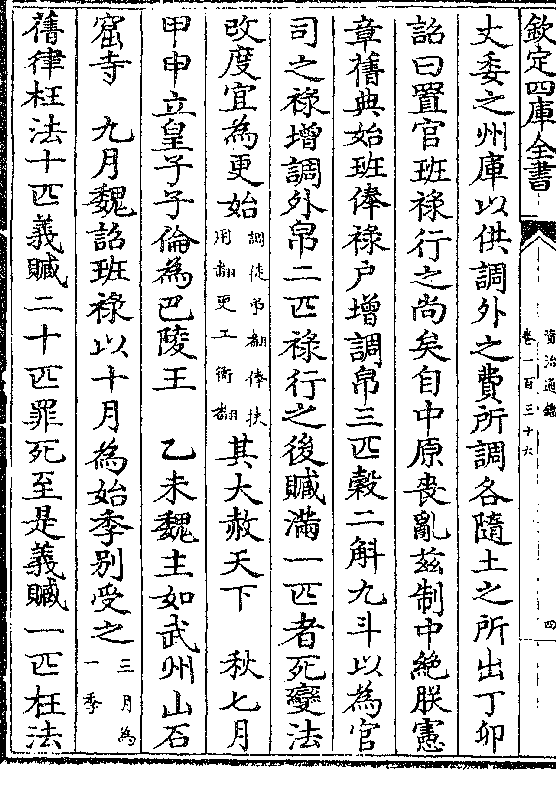 欽定四庫全書
資治通鑑
卷一百三十六
四
丈委之州庫以供調外之費所調各隨土之所出丁卯
詔曰置官班祿行之尚矣自中原喪亂茲制中絶朕憲
章舊典始班俸祿户增調帛三匹穀二斛九斗以為官
司之祿增調外帛二匹祿行之後贓滿一匹者死變法
改度宜為更始調徒弔翻俸扶
用翻更工衡翻其大赦天下　秋七月
甲申立皇子子倫為巴陵王　乙未魏主如武州山石
窟寺　九月魏詔班祿以十月為始季别受之三月為
一季
舊律枉法十匹義贓二十匹罪死至是義贓一匹枉法